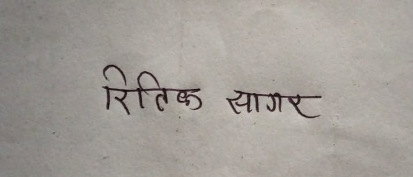 रितिक सागर